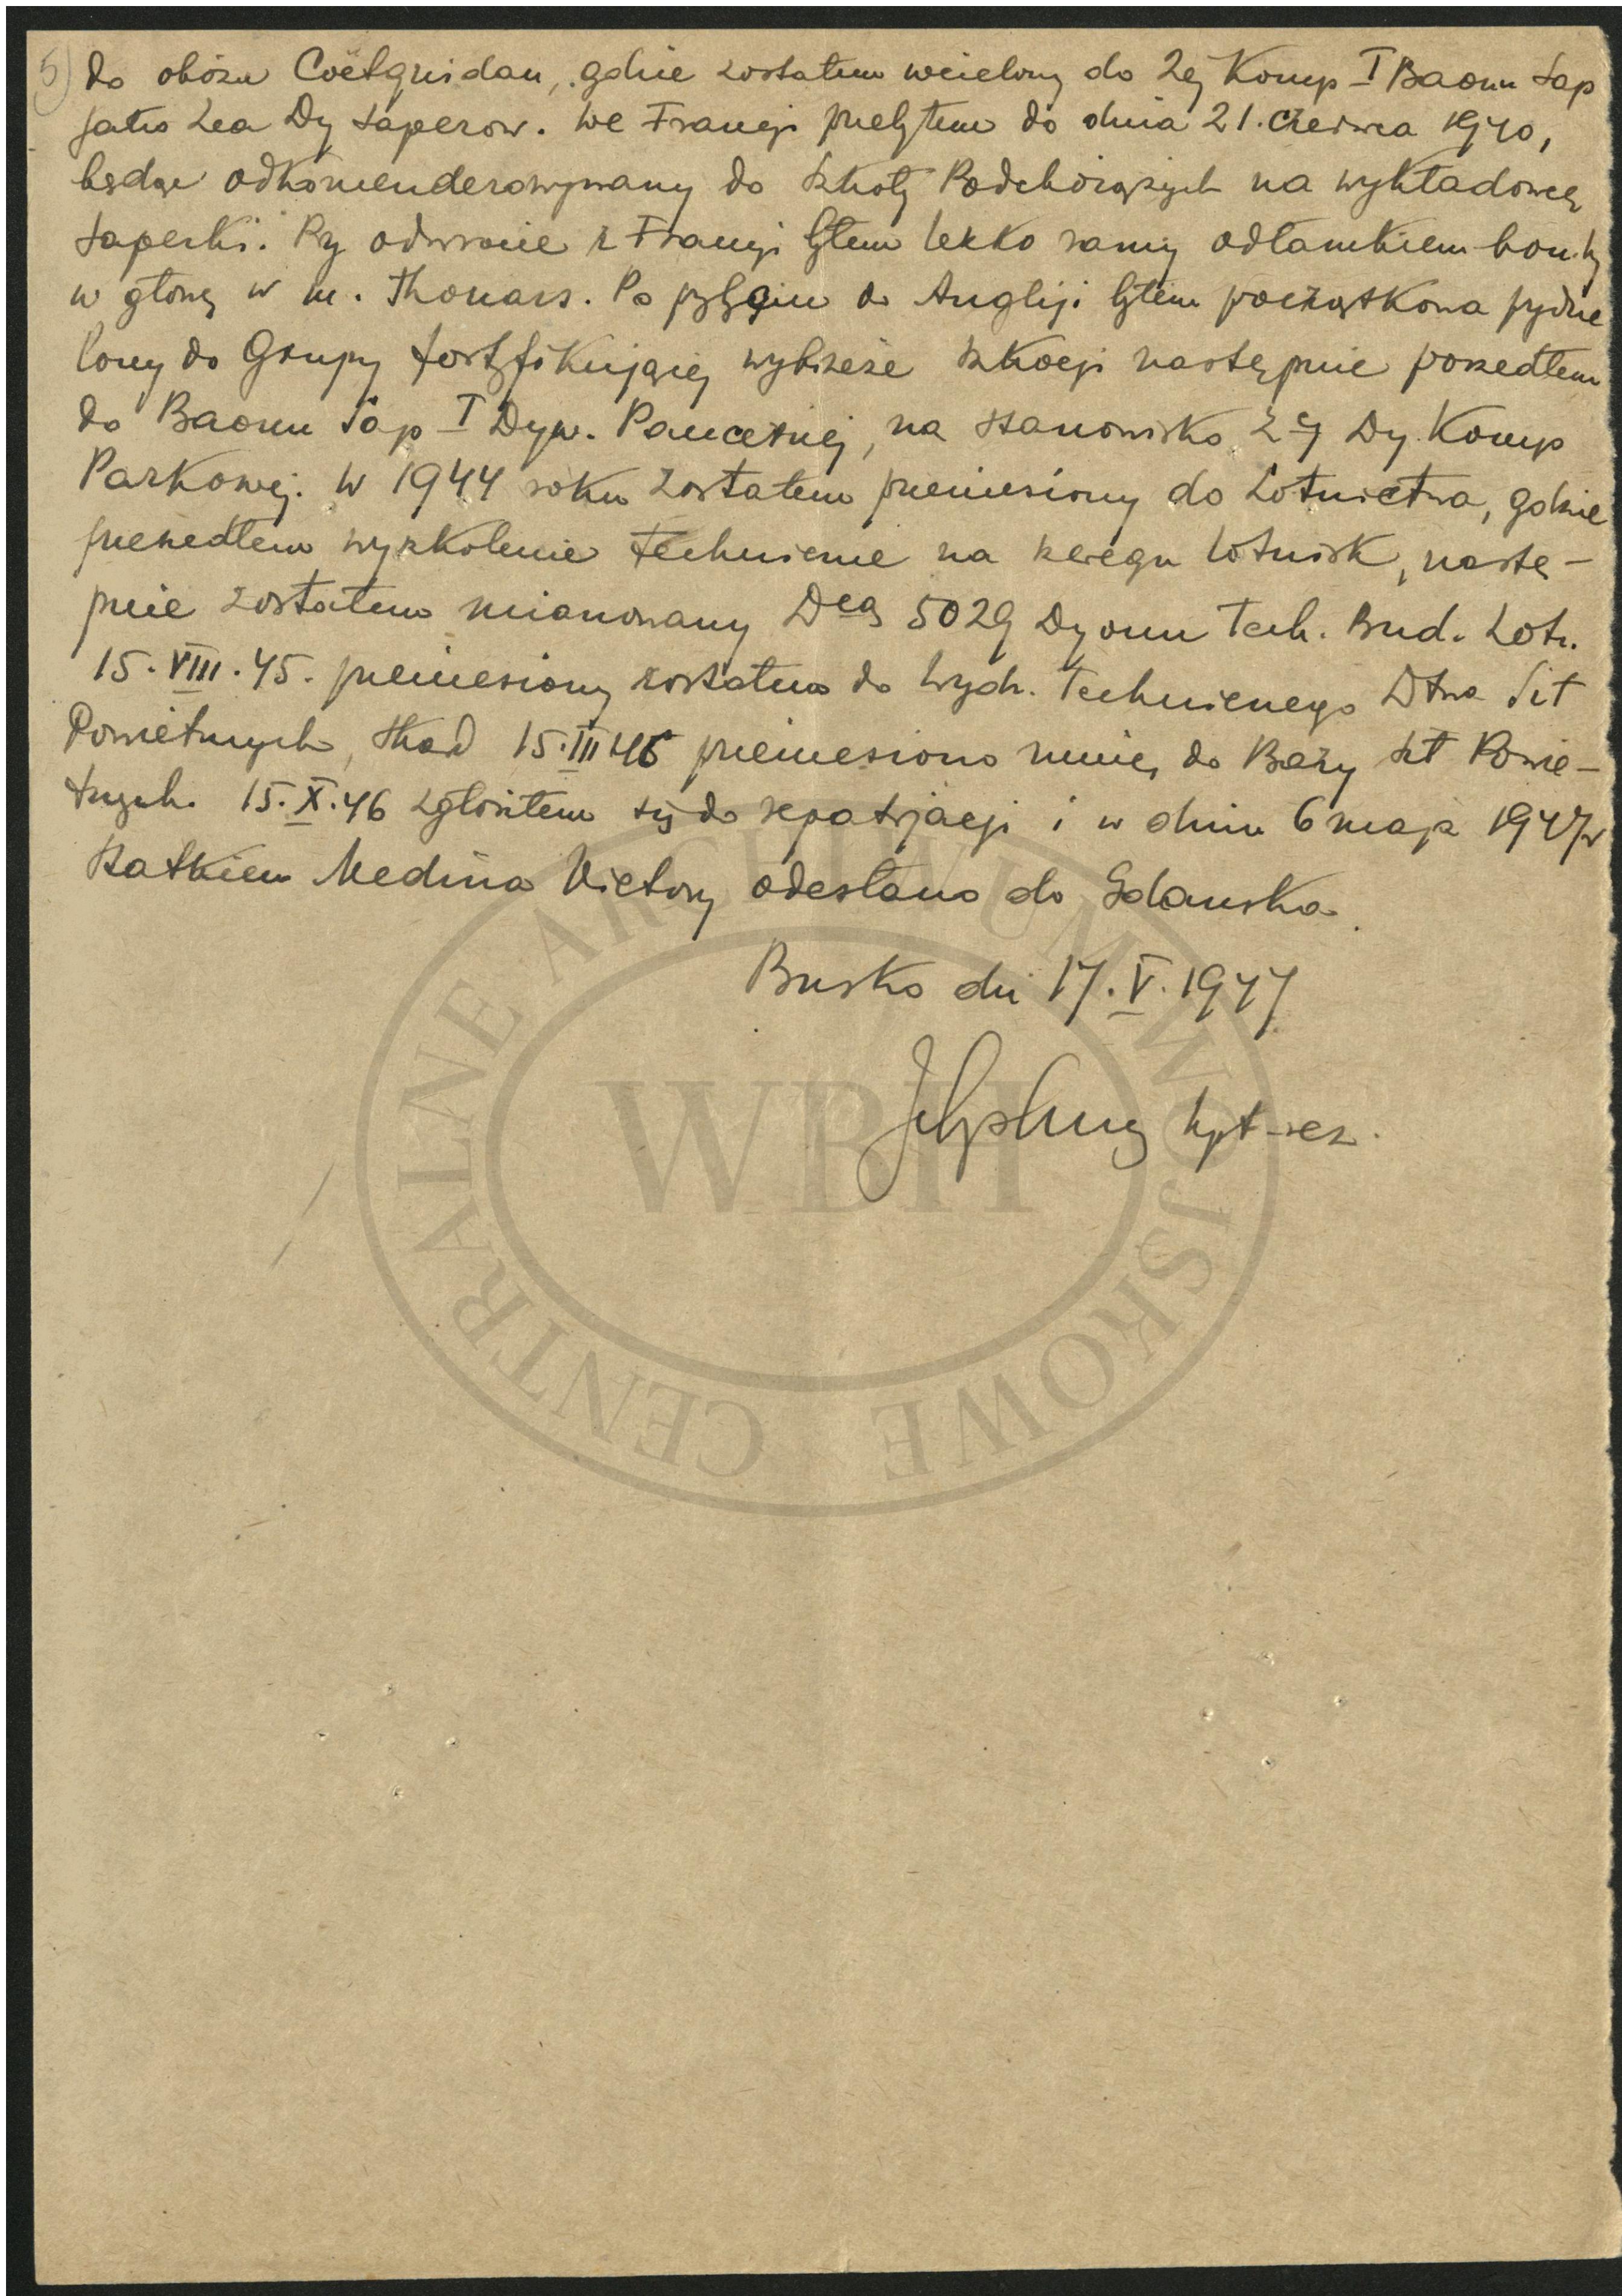 5) do obozu Coëtquidan, gdzie zostałem wcielony do 2ej Komp I Baonu Sap
jako zca Dcy saperów. We Francji przebyłem do dnia 21. czerwca 1940,
będąc odkomenderowywany do Szkoły Podchorążych na wykładowcę
saperki. Przy odwrocie z Francji byłem lekko ranny odłamkiem bomby
w głowę w m. Thouars. Po przybyciu do Anglji byłem początkowo przydzie
lony do Grupy fortyfikującej wybrzeże Szkocji następnie poszedłem
do Baonu Sap I Dyw. Pancernej, na stanowisko Z-cy Dcy Komp
Parkowej. W 1944 roku zostałem przeniesiony do Lotnictwa, gdzie
przeszedłem wyszkolenie techniczne na szczegu lotnisk, nastę-
pnie zostałem mianowany Dcą 5029 Dyonu Tech. Bud. Lotn.
15.VIII.45. przeniesiony zostałem do Wydz. Technicznego Dtwa Sił
Powietrznych, skąd 15.III 46 przeniesiono mnie, do Bazy Sił Powie-
trznych. 15.X.46 zgłosiłem się do repatrjacji i w dniu 6 maja 1947r
statkiem Medina Victory odesłano do Gdańska.
Busko dn 17.V.1947
kpt-rez.
CENTRALNE ARCHIWUM WOJSKOWE
WBH